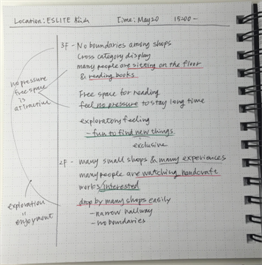 Location: ESLITE
Time: May 20 15:00 ~
3F - No boundaries among shops
Cross category display
many people are sitting on the floor
& reading books.
No pressure
free space is
attractive
Free space for reading
feel no pressure to stay long time
exploratory feeling
- fun to find new things
exclusive
2F - many small shops & many experiences
many people are watching handcraft
works interested
drop by many shops easily
- narrow hallway
- no boundaries
exploration is
enjoyment